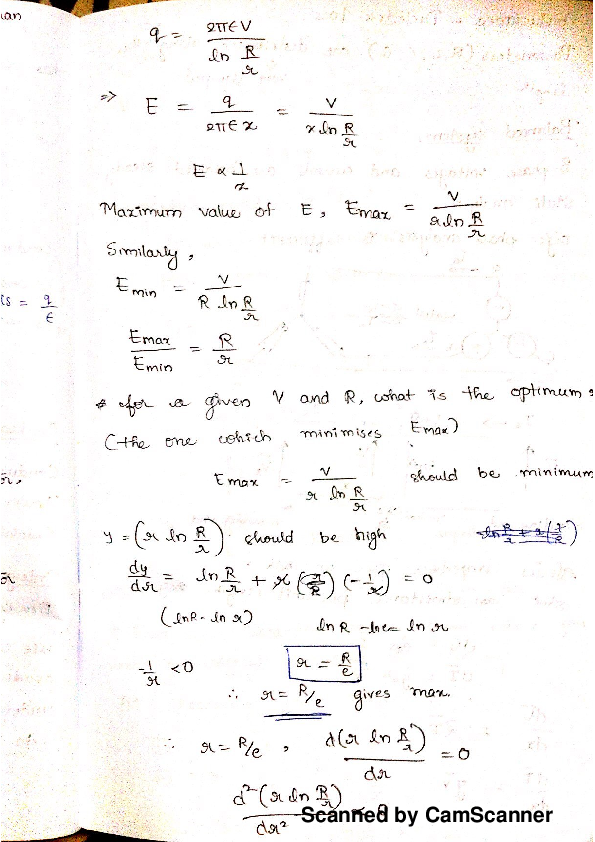 q = 2πϵV / ln R/r
⇒ E = q / 2πϵx = V / x ln R/r
E ∝ 1/x
Maximum value of E, Emax = V / r ln R/r
Similarly,
E min = V / R ln R/r
Emax / Emin = R / r
= q / ϵ
* for a given V and R, what is the optimum r
(the one which minimises Emax)
Emax = V / r ln R/r should be minimum
y = (r ln R/r) should be high
dy/dr = ln R/r + r (r/R) (-1/r) = 0
(lnR - ln r)
ln R - lne = ln r
-1/r < 0
r = R/e
∴ r = R/e gives max.
∴ r = R/e , d(r ln R/r) / dr = 0
d²(r ln R/r) / dr²
Scanned by CamScanner